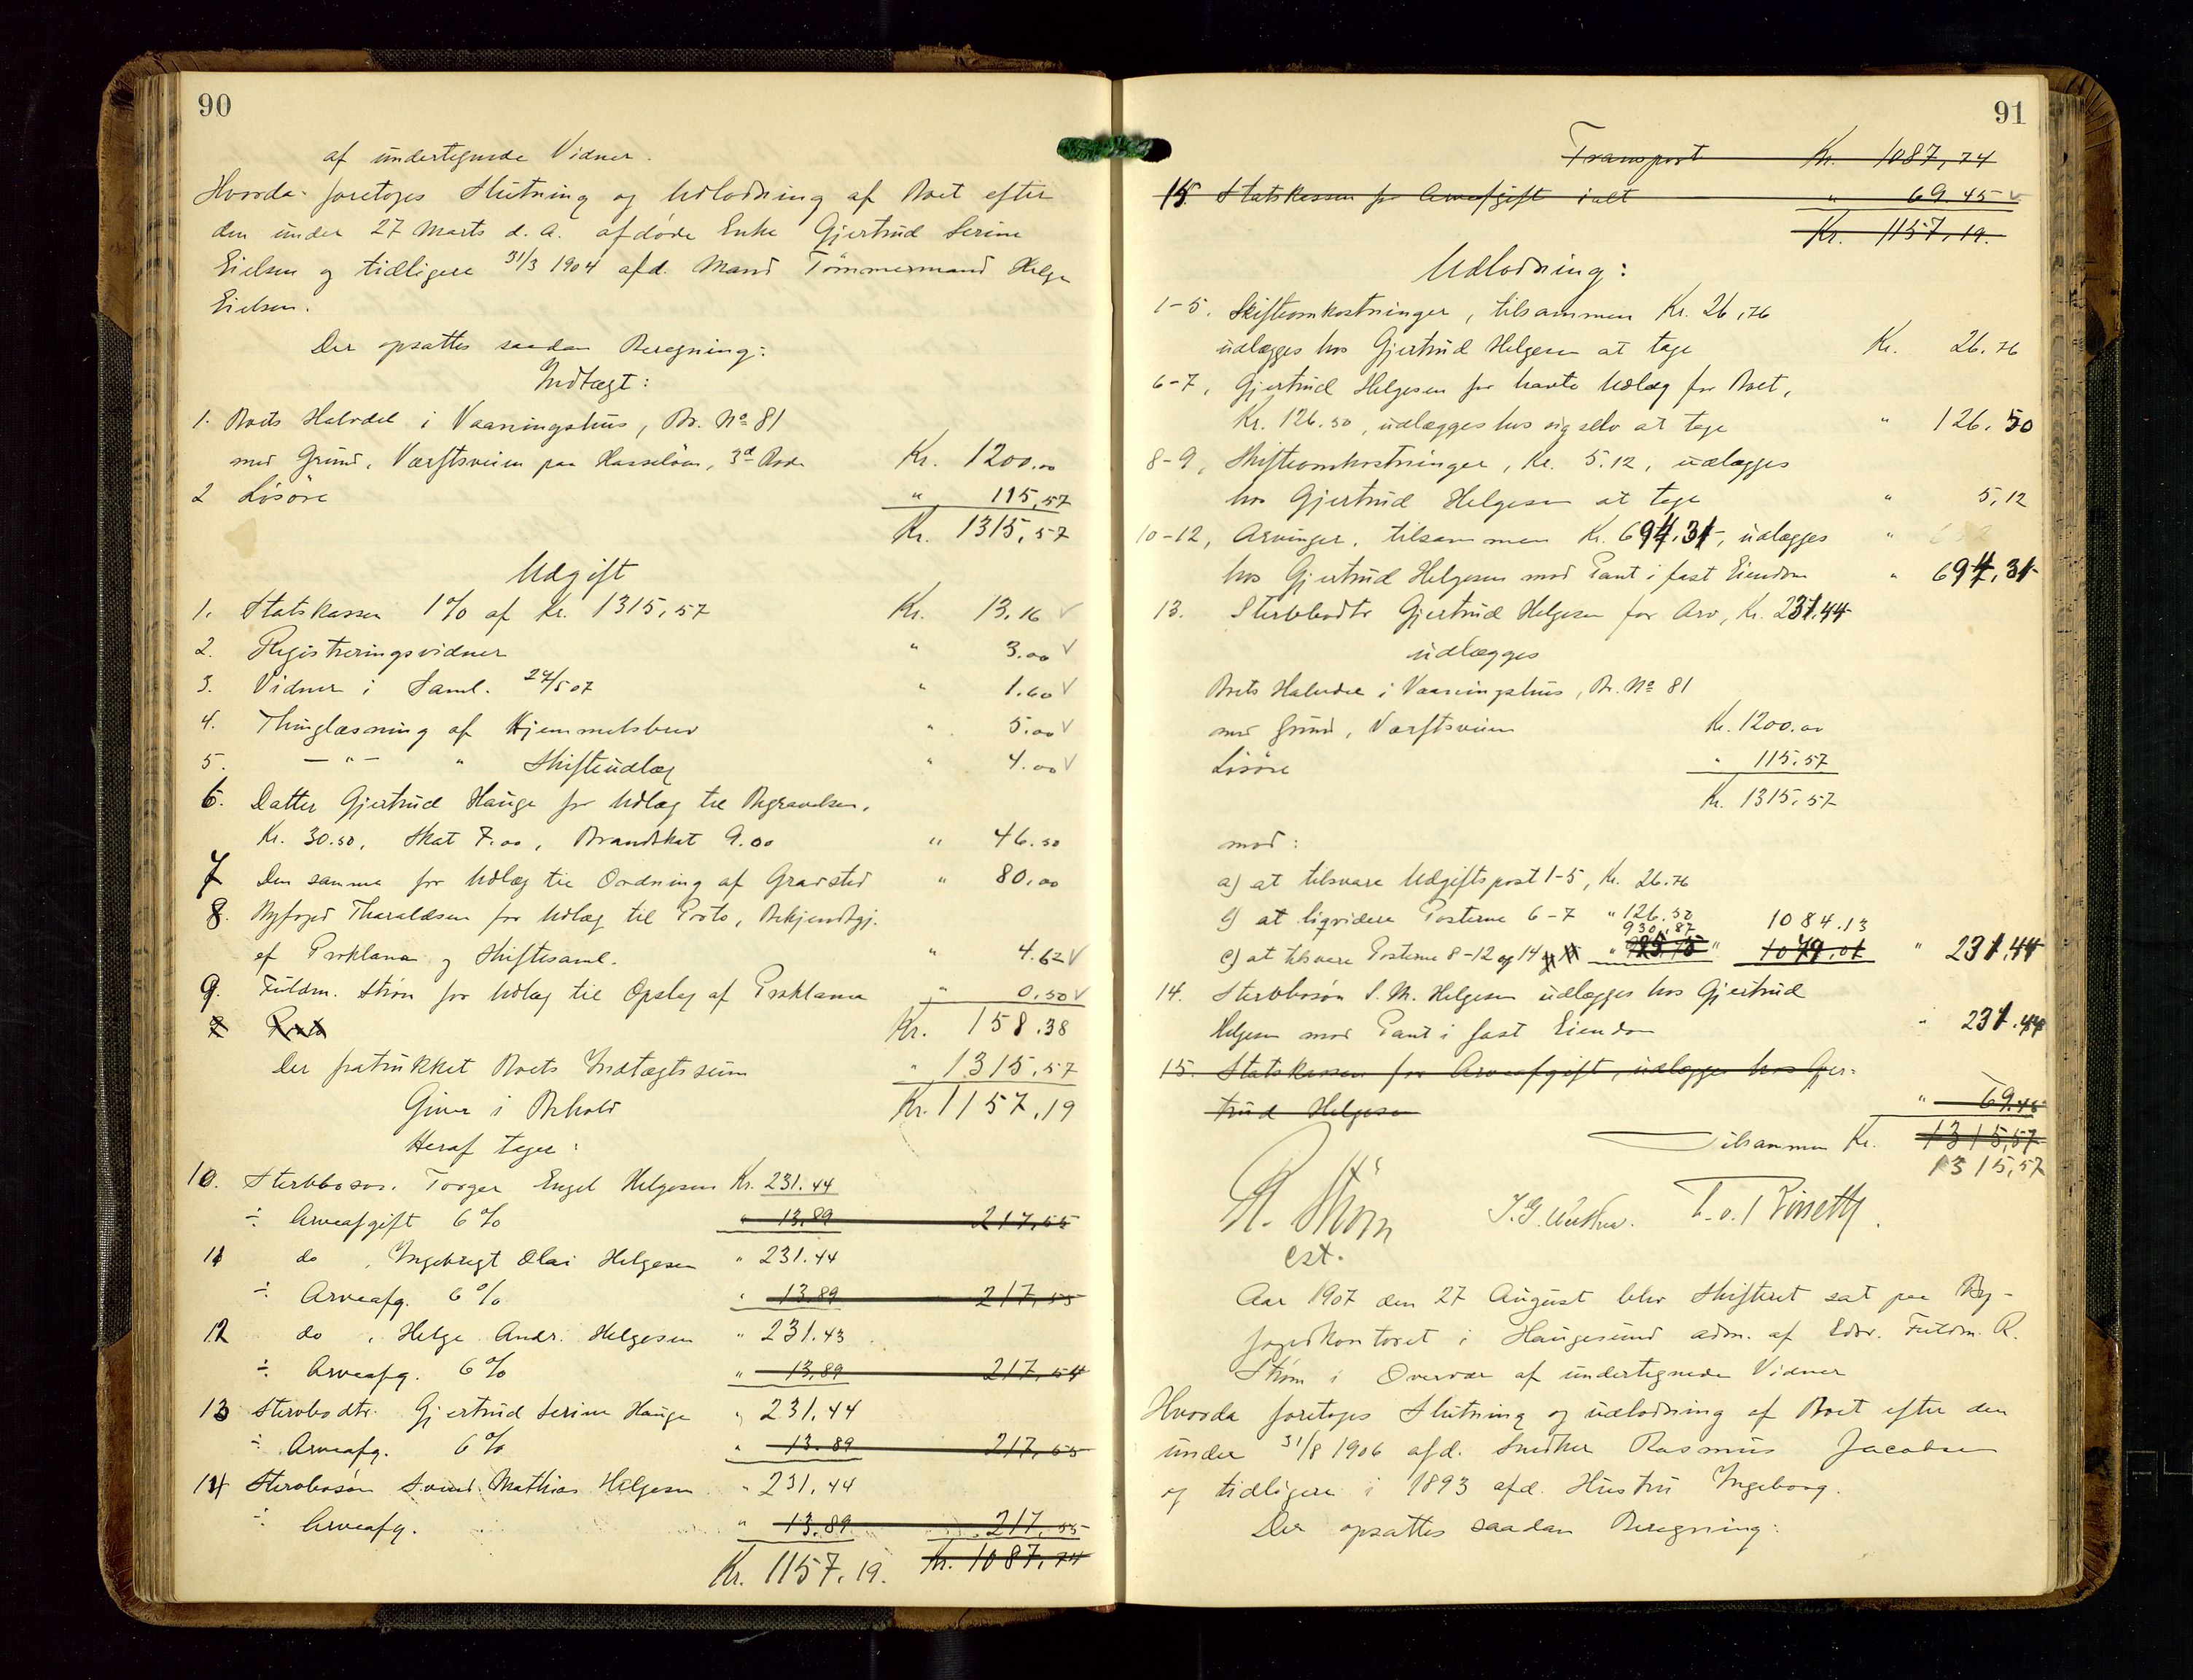 90
af undertegnede Vidner.
Hvorda foretoges Slutning og Udlodning af Boet efter
den under 27 Marts d. A. afdøde Enke Gjertrud Serine
Eielsen og tidligere 31/3 1904 afd. Mand Tømmermand Helge
Eielsen.
Der opsattes saadan Beregning:
Indtægt:
1. Boets Halvdel i Vaaningshus, Br. No 81
med Grund, Værftsveien paa Hasseløen, 3d Rode Kr. 1200.00
2 Løsøre " 115,57
Kr. 1315,57
Udgift
1. Statskassen 1% af Kr. 1315,57 Kr. 13,16 ✓
2. Registreringsvidner " 3.00 ✓
3. Vidner i Saml. 27/5 07 " 1.60 ✓
4. Thinglæsning af Hjemmelsbrev " 5.00 ✓
5. — " — " Skifteudlæg " 4.00 ✓
6. Datter Gjertrud Hauge for Udlæg til Begravelsen,
Kr. 30.50, Skat 7.00, Brandskat 9.00 " 46.50
7 Den samme for Udlæg til Ordning af Gravsted " 80,00
8. Byfoged Tharaldsen for Udlæg til Porto, Bekjendtgj.
af Proklama og Skiftesaml. " 4.62 ✓
9. Fuldm. Strøm for Udlæg til Opslag af Proklama " 0.50 ✓
Kr. 158.38
Der fratrukket Boets Indtægtssum " 1315,57
Giver i Behold Kr. 1157,19
Heraf tager:
10. Sterbbosøn. Torger Engel Helgesen Kr. 231.44
÷ Arveafgift 6% " 13,89 217,55
11 do , Ingebregt Olai Helgesen " 231.44
÷ Arveafg. 6% " 13.89 217,55
12 do , Helge Andr. Helgesen " 231.43
÷ Arveafg. 6% " 13,89 217,54
13 Sterbbodtr. Gjertrud Serine Hauge " 231,44
÷ Arveafg. 6% " 13.89 217,55
14 Sterbbosøn Svend Mathias Helgesen " 231,44
÷ Arveafg. " 13.89 217,55
Kr. 1157,19. Kr. 1087,74
91
Transport Kr. 1087,74
15. Statskassen for Arveafgift ialt " 69.45 ✓
Kr. 1157,19.
Udlodning:
1-5. Skifteomkostninger, tilsammen Kr. 26,76
udlægges hos Gjertrud Helgesen at tage Kr. 26.76
6-7, Gjertrud Helgesen for havte Udlæg for Boet,
Kr. 126.50, udlægges hos sig selv at tage " 126,50
8-9, Skifteomkostninger, Kr. 5.12, udlægges
hos Gjertrud Helgesen at tage " 5,12
10-12, Arvinger, tilsammen Kr. 694.31, udlægges "
hos Gjertrud Helgesen mod Pant i fast Eiendom " 694,31
13. Sterbbodtr Gjertrud Helgesen for Arv, Kr. 231.44
udlægges
Boets Halvdel i Vaaningshus, Br. No 81
med Grund, Værftsveien Kr. 1200.00
Løsøre " 115.57
Kr. 1315,57
mod:
a) at tilsvare Udgiftspost 1-5, Kr. 26.76
b) at liqvidere Posterne 6-7 " 126.50 1084.13
930,87
c) at tilsvare Posterne 8-12 og 14 " 231,44
14. Sterbbosøn S. M. Helgesen udlægges hos Gjertrud
Helgesen mod Pant i fast Eiendom " 231.44
15. Statskassen for Arveafgift, udlægges hos Gjer-
trud Helgesen " 69.45
Tilsammen Kr. 1315,57
1315,57
R. Strøm
cst.
Aar 1907 den 27 August blev Skifteret sat paa By-
fogedkontoret i Haugesund adm. af Edsv. Fuldm. R.
Strøm i Overvær af undertegnede Vidner
Hvorda foretoges Slutning og udlodning af Boet efter den
under 31/8 1906 afd. Snedker Rasmus Jacobsen
og tidligere i 1893 afd. Hustru Ingeborg.
Der opsattes saadan Beregning: